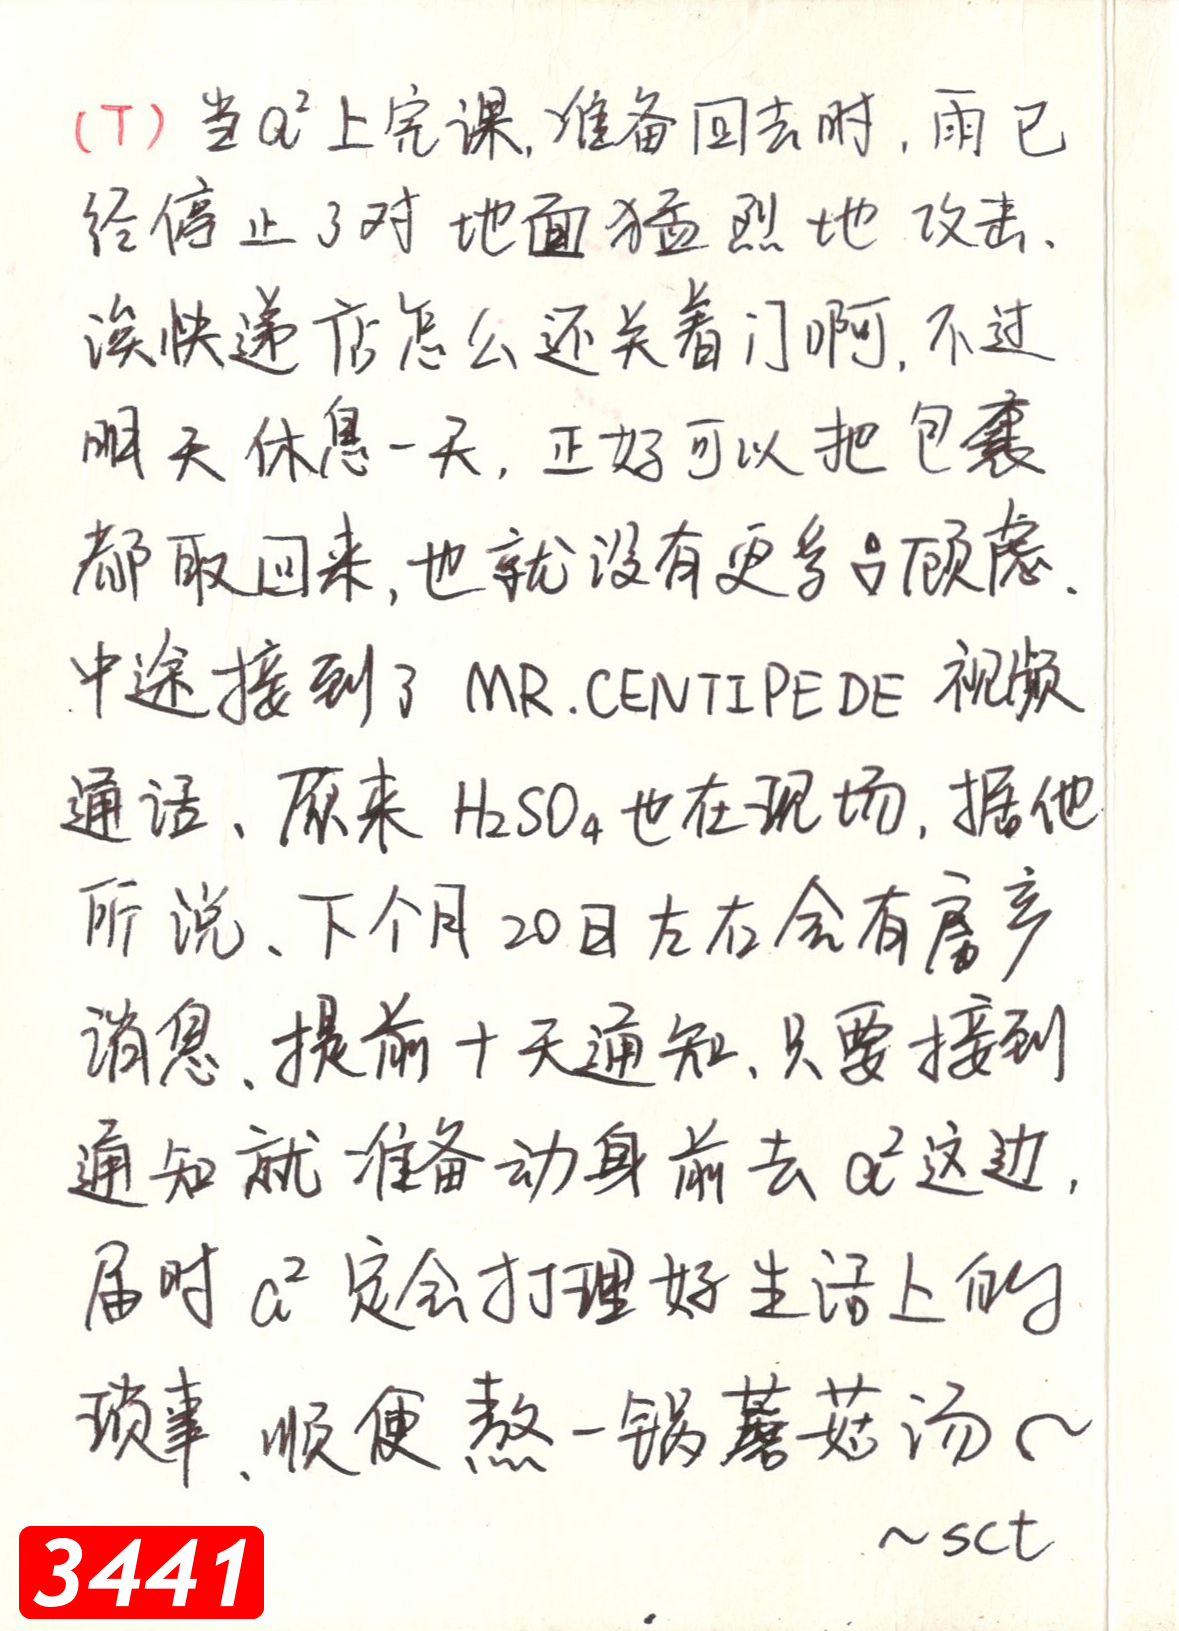 (T)当a²上完课,准备回去时,雨已
经停止了对地面猛烈地攻击、
诶快递店怎么还关着门啊,不过
明天休息一天,正好可以把包裹
都取回来,也就没有更多顾虑、
中途接到了 MR.CENTIPEDE 视频
通话、原来 H₂SO₄也在现场,据他
所说、下个月20日左右会有畜产
消息、提前十天通知、只要接到
通知就准备动身前去a²这边,
届时a²定会打理好生活上的
琐事、顺便熬一锅蘑菇汤~
~sct
3441